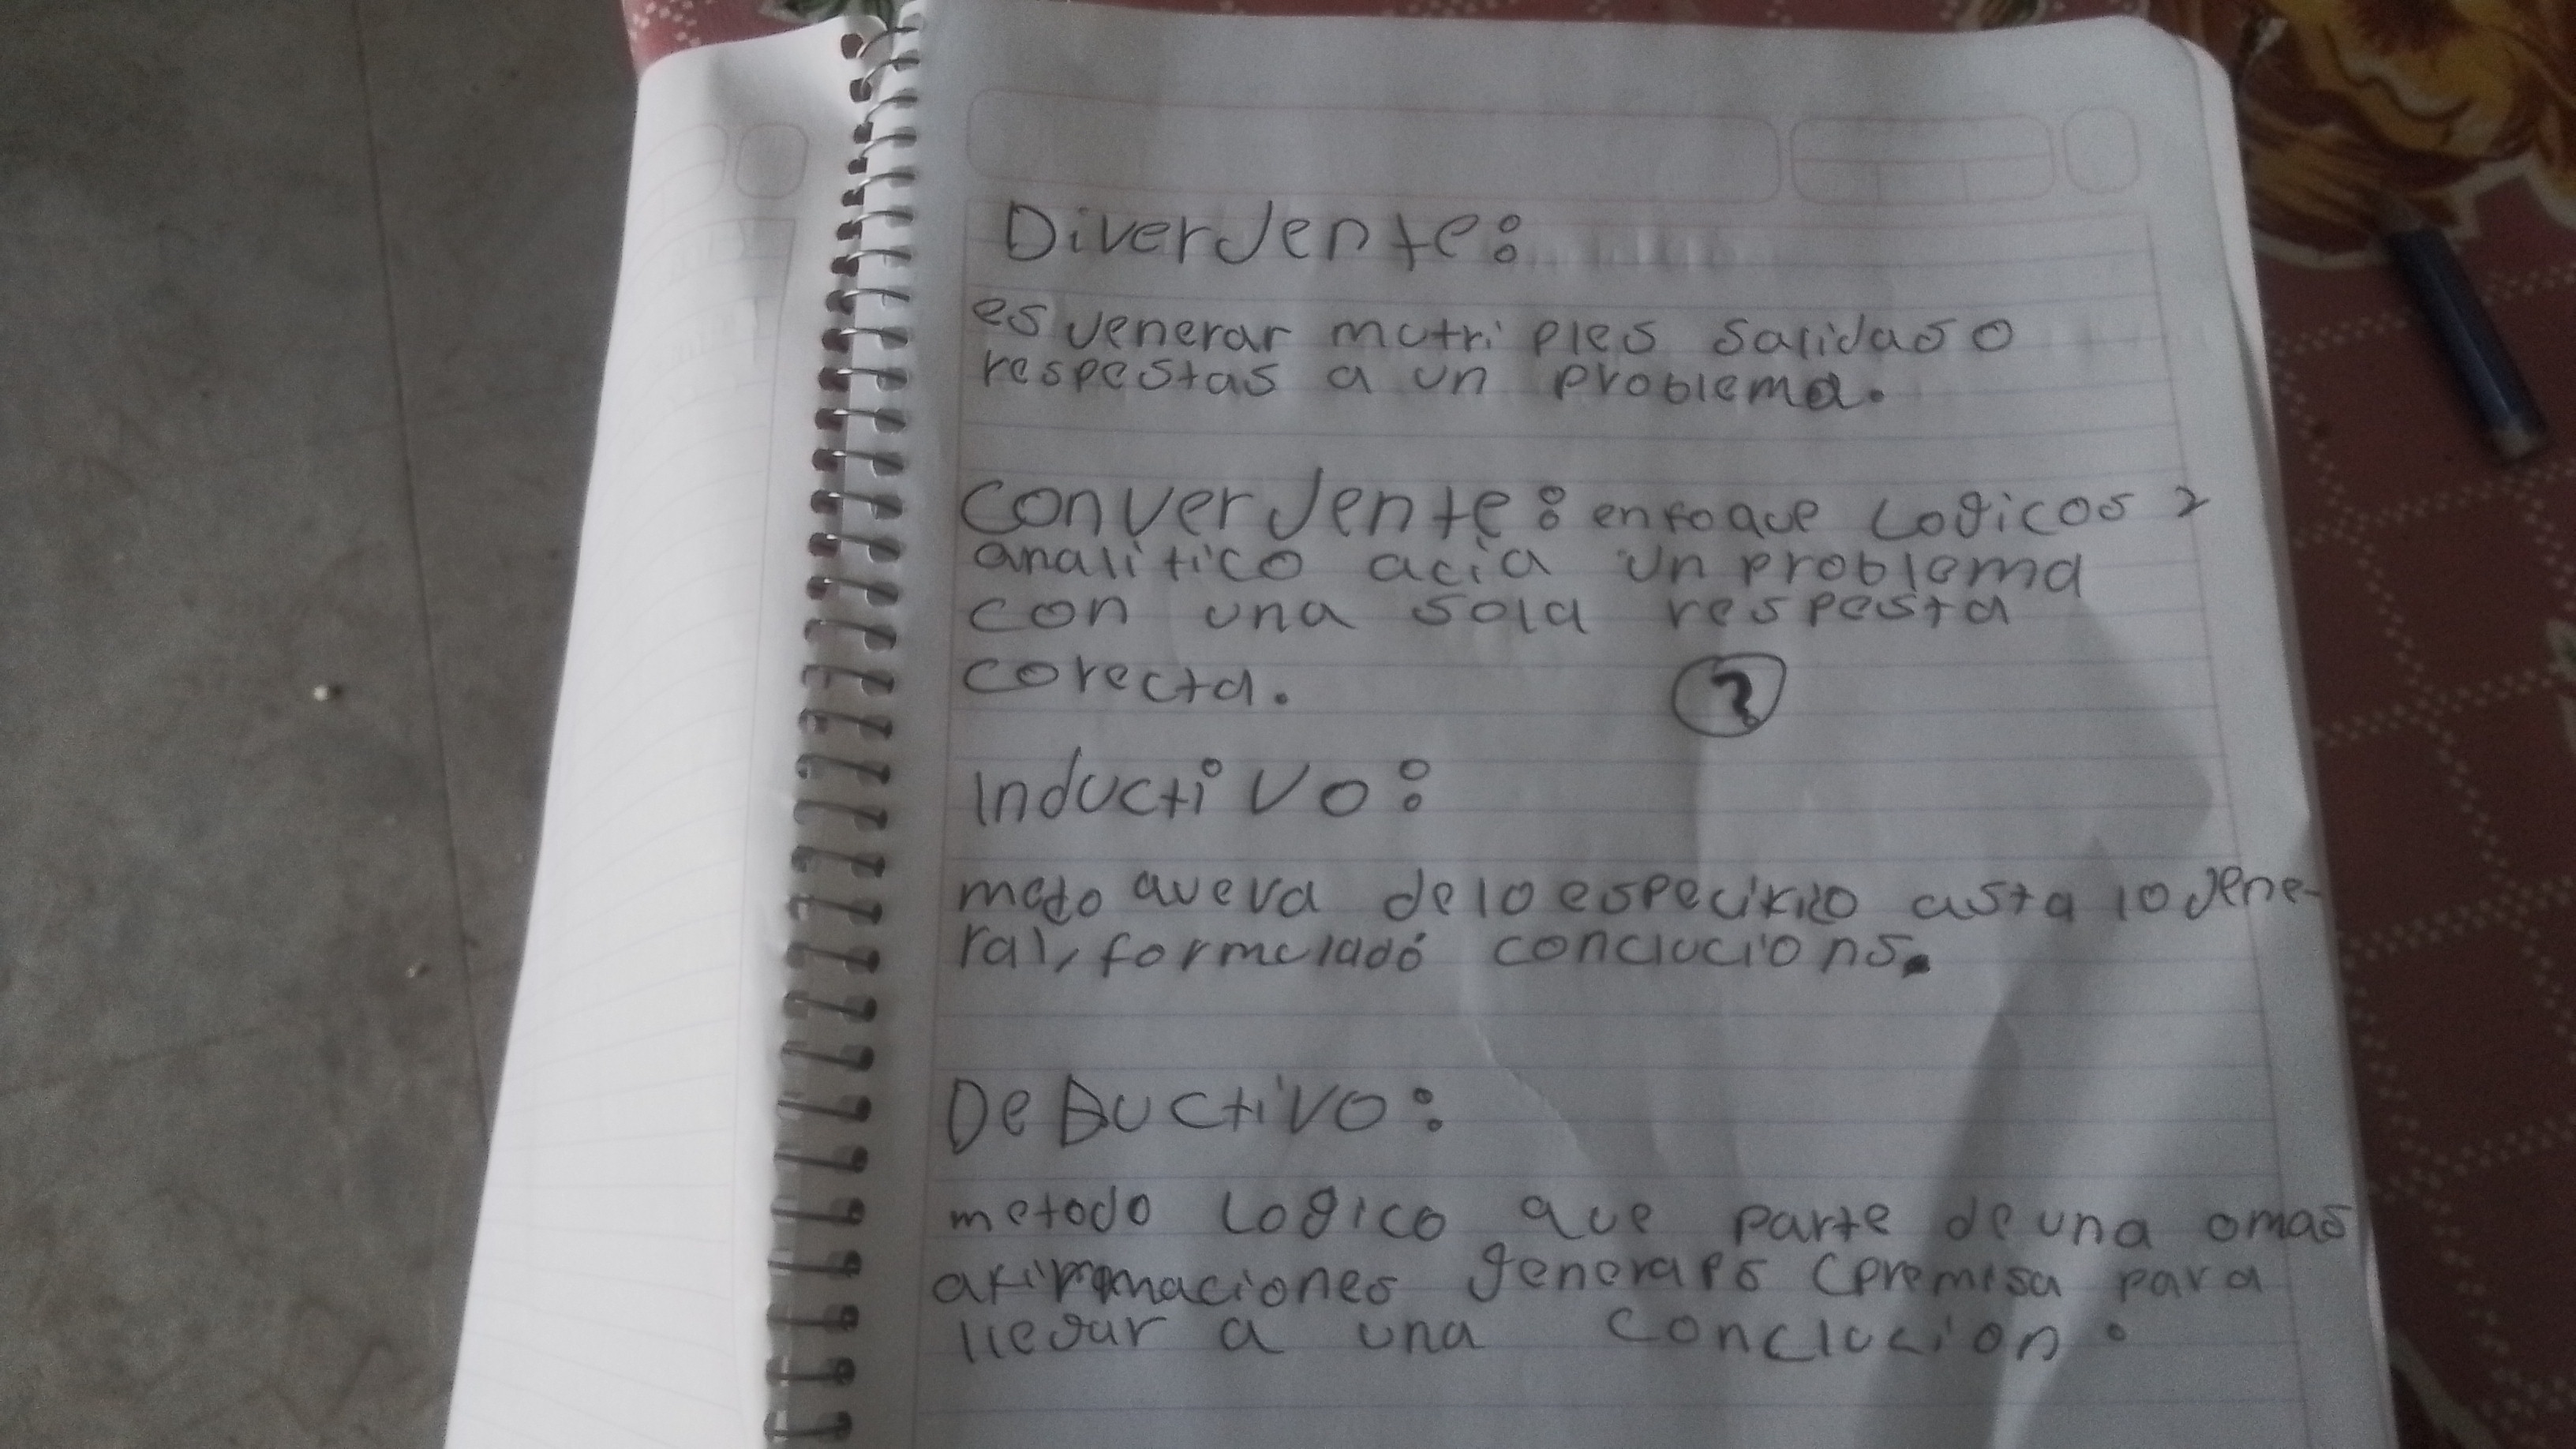 DiverJente:
es Jenerar mutriples salidas o
respestas a un problema.
converJente: enfoque Logicos y
analitico acia un problema
con una sola respesta
corecta.
?
InductiVo:
metodo que va de lo especifico asta lo Jene-
ral, formulado conclucions.
DeDuctivo:
metodo Logico que parte de una o mas
afirmaciones generales (premisa para
llegar a una conclucion.